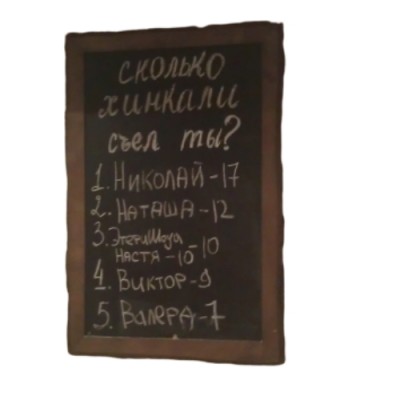 сколько
хинкали
съел ты?
1. Николай - 17
2. Наташа - 12
3. - 10
Настя - 10
4. Виктор - 9
5. Валера - 7